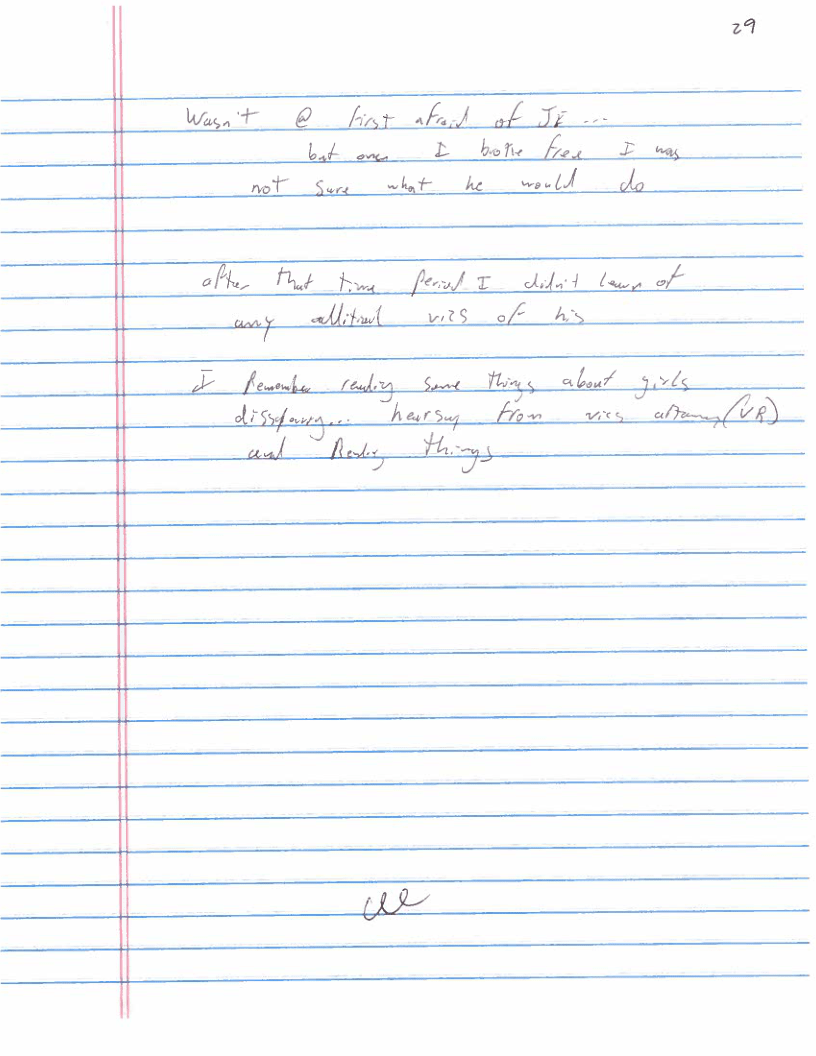 29
Wasn't @ first afraid of JE ...
but once I broke free I was
not sure what he would do
after that time period I didn't learn of
any additional vics of his
I Remember reading some things about girls
dissapearing... hearsay from vics attorney (VR)
and Reading things